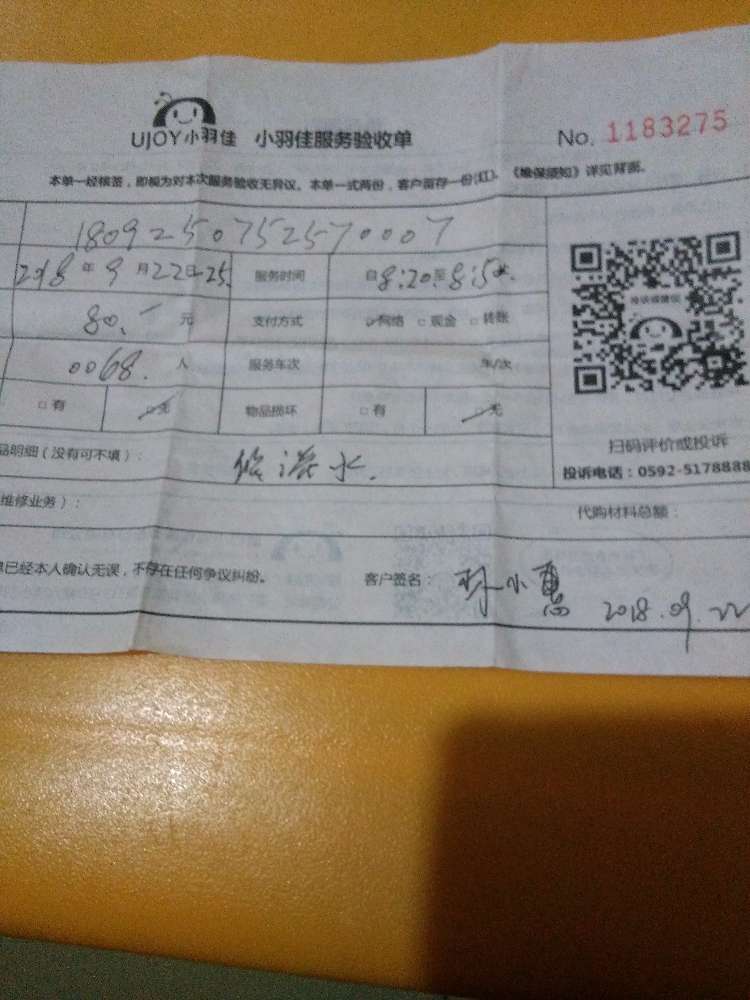 UJOY小羽佳 小羽佳服务验收单 No. 1183275
本单一经核签，即视为对本次服务验收无异议。本单一式两份，客户留存一份(红)。《维保须知》详见背面。
1809250752570007
2018年9月22日-25. 服务时间 自8:20至8:50
80.- 元 支付方式 网络 □现金 □转账
0068. 人 服务车次 车/次
□有 □无 物品损坏 □有 □无
品明细（没有可不填）： 修漏水.
扫码评价或投诉
投诉电话：0592-5178888
维修业务）： 代购材料总额：
单已经本人确认无误，不存在任何争议纠纷。 客户签名： 小惠 2018.09.22